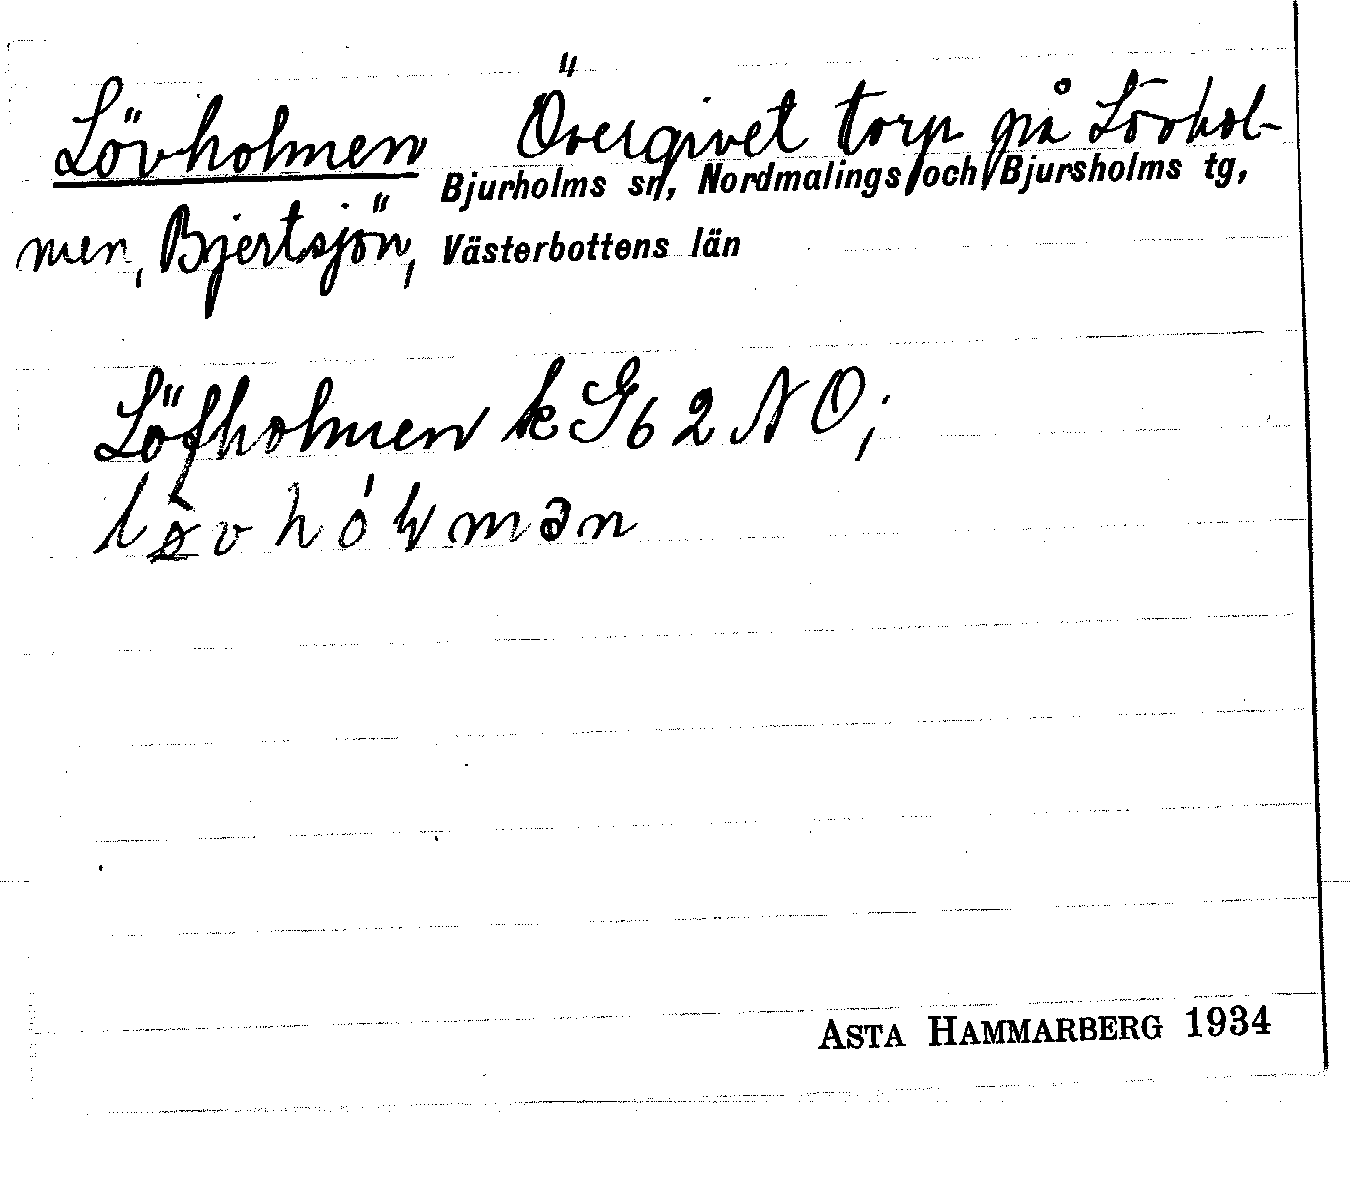 Lövholmen Övergivet torp på Lövhol-
Bjurholms sn, Nordmalings och Bjursholms tg,
men, Bjertsjön, Västerbottens län
Löfholmen k G 6 2 N O;
ASTA HAMMARBERG 1934